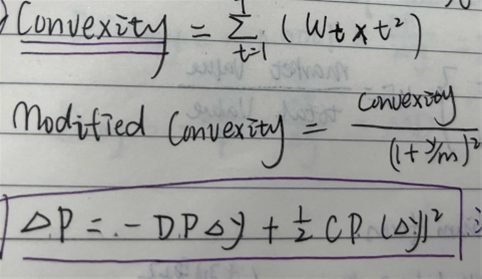 Convexity = Σ t=1 (Wt × t²)
Modified Convexity = convexity / (1 + y/m)²
ΔP = - D.P Δy + 1/2 C P. (Δy)²